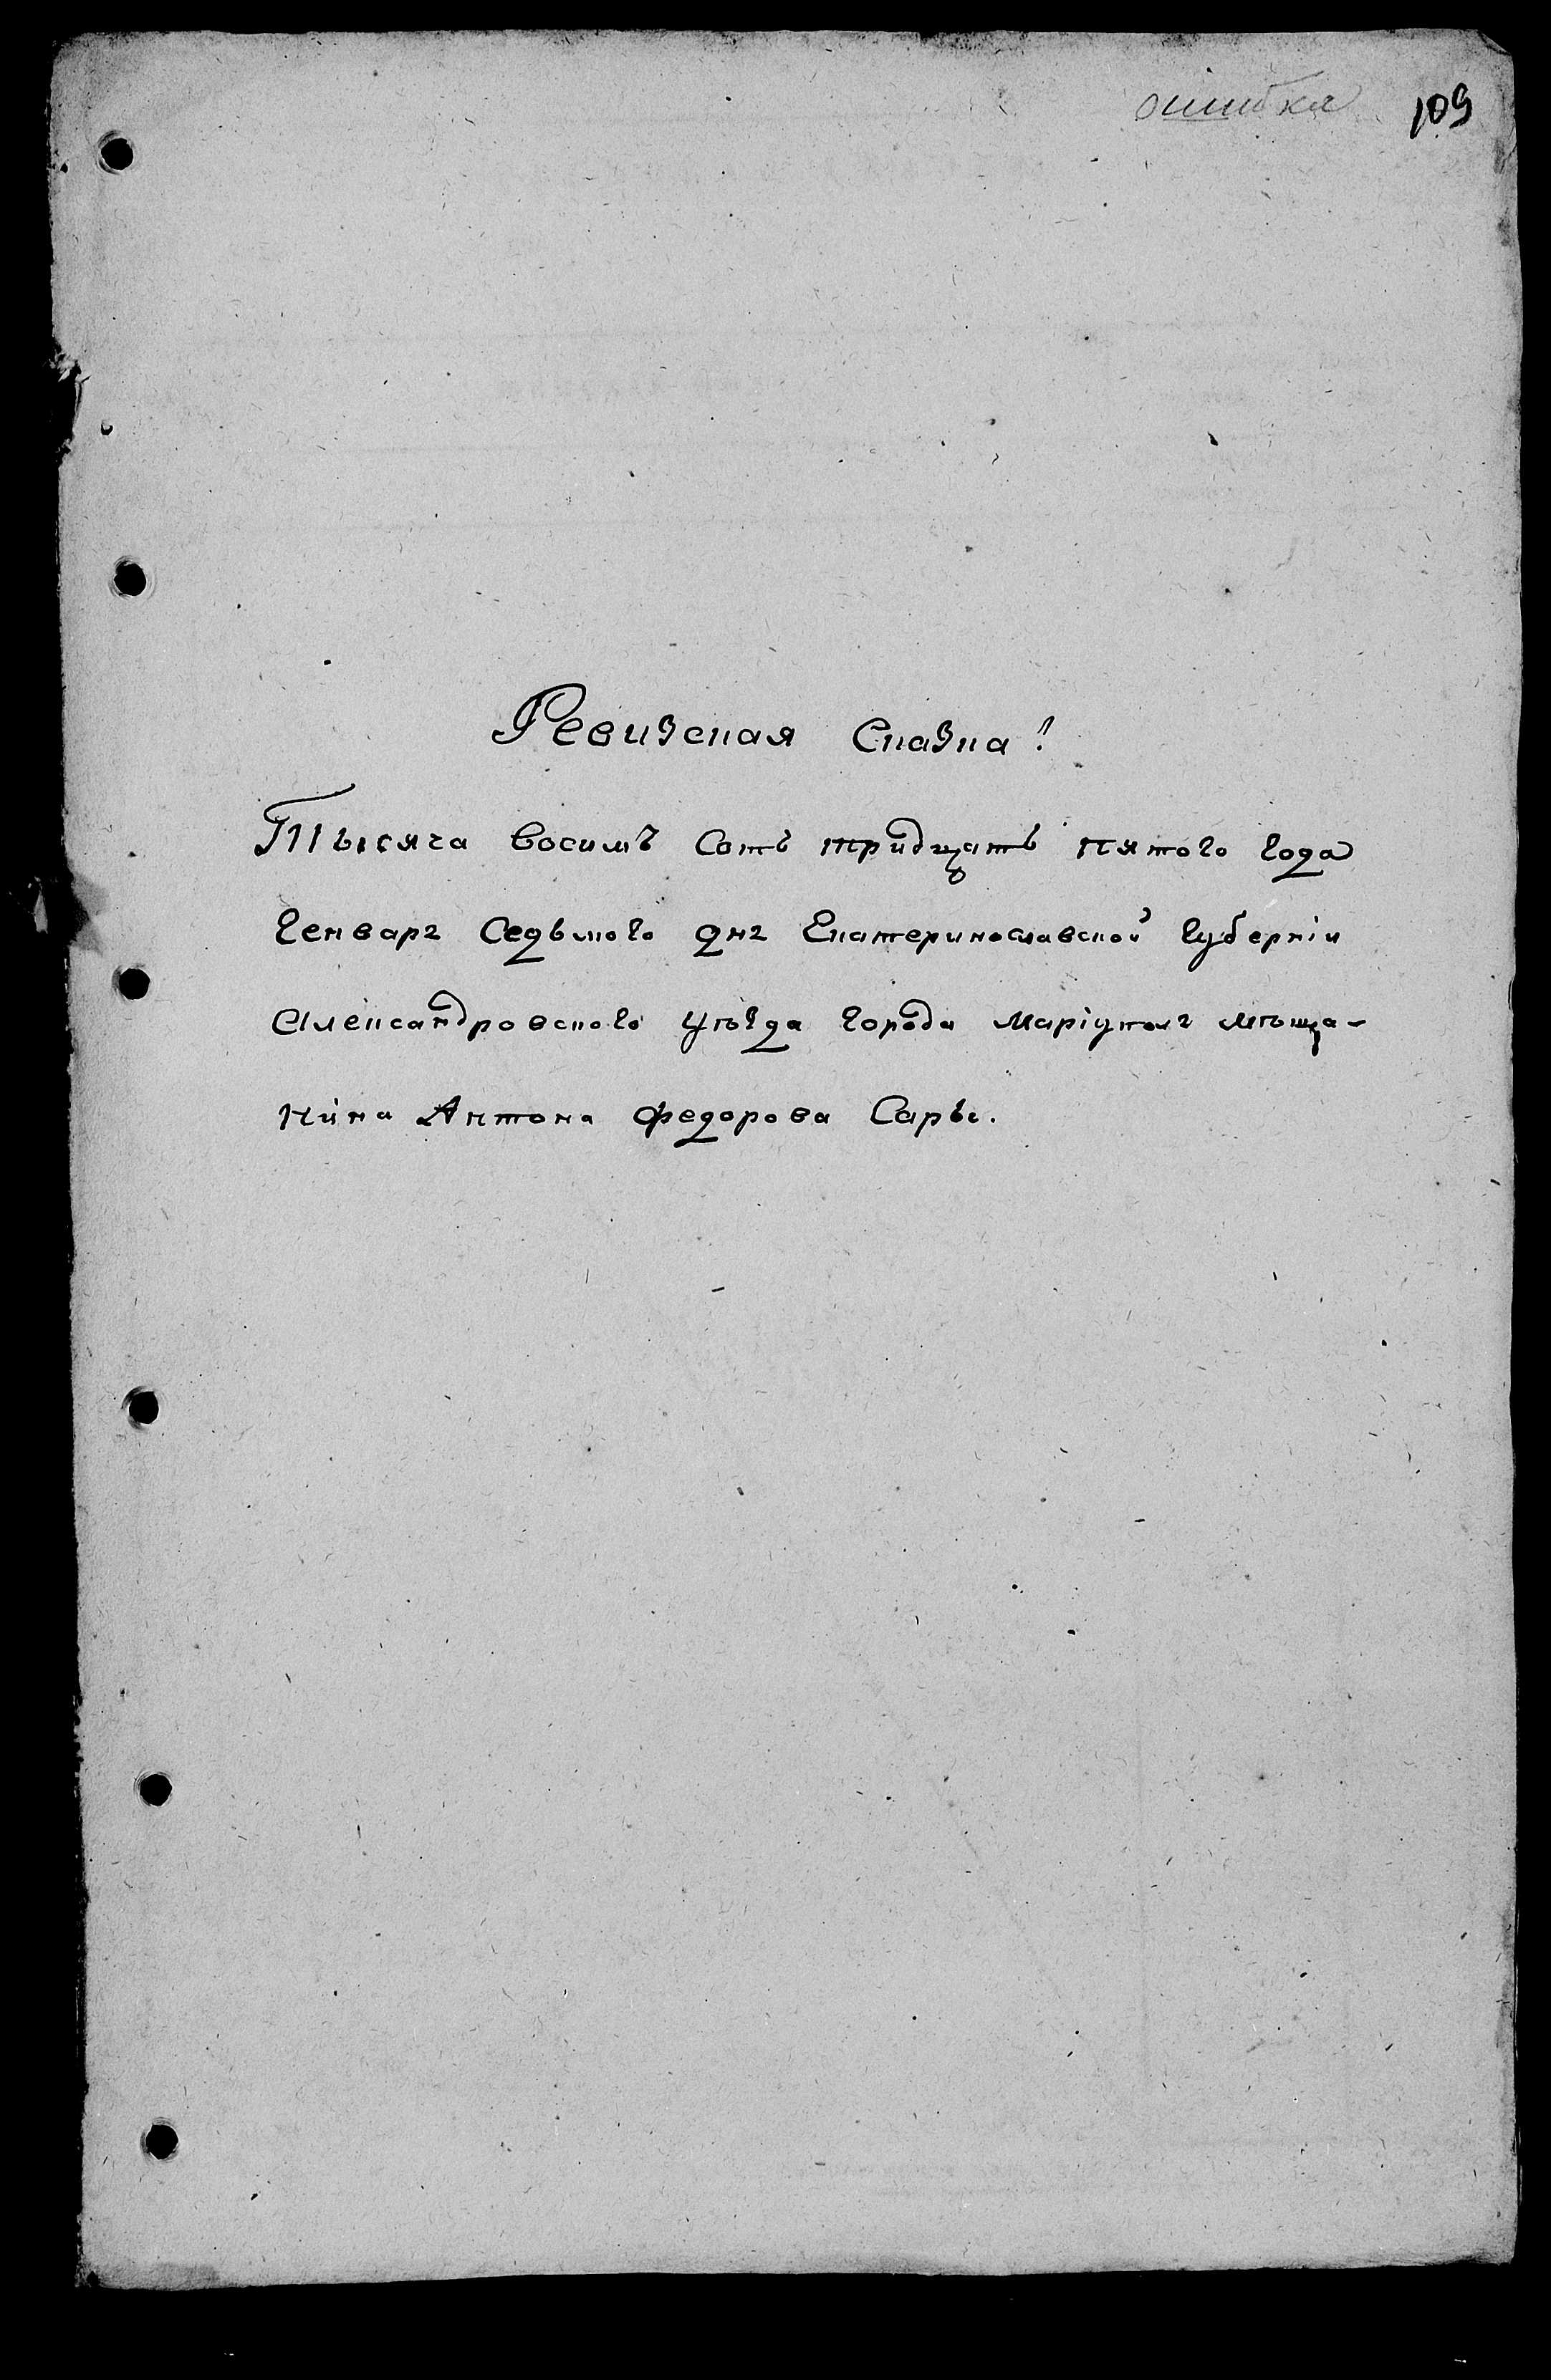 ошибка 109
Ревизская Сказка!
Тысяча восимъ Сотъ тридцать пятого года
Генваря Седьмого дня Екатеринославской Губерніи
Александровского уѣзда города Маріуполя мѣща-
нина Антона Федорова Сары.